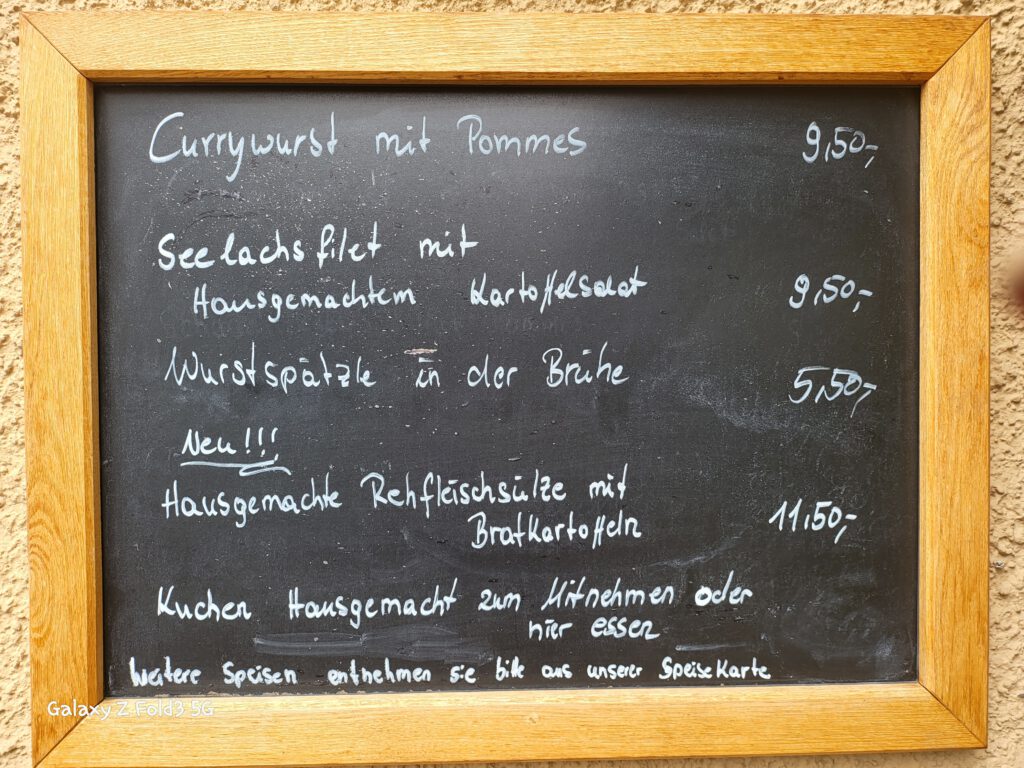 Currywurst mit Pommes 9,50,-
Seelachsfilet mit
Hausgemachtem Kartoffelsalat 9,50,-
Wurstspätzle in der Brühe 5,50,-
Neu!!!
Hausgemachte Rehfleischsülze mit
Bratkartoffeln 11,50,-
Kuchen Hausgemacht zum Mitnehmen oder
hier essen
Weitere Speisen entnehmen sie bitte aus unserer Speisekarte
Galaxy Z Fold3 5G